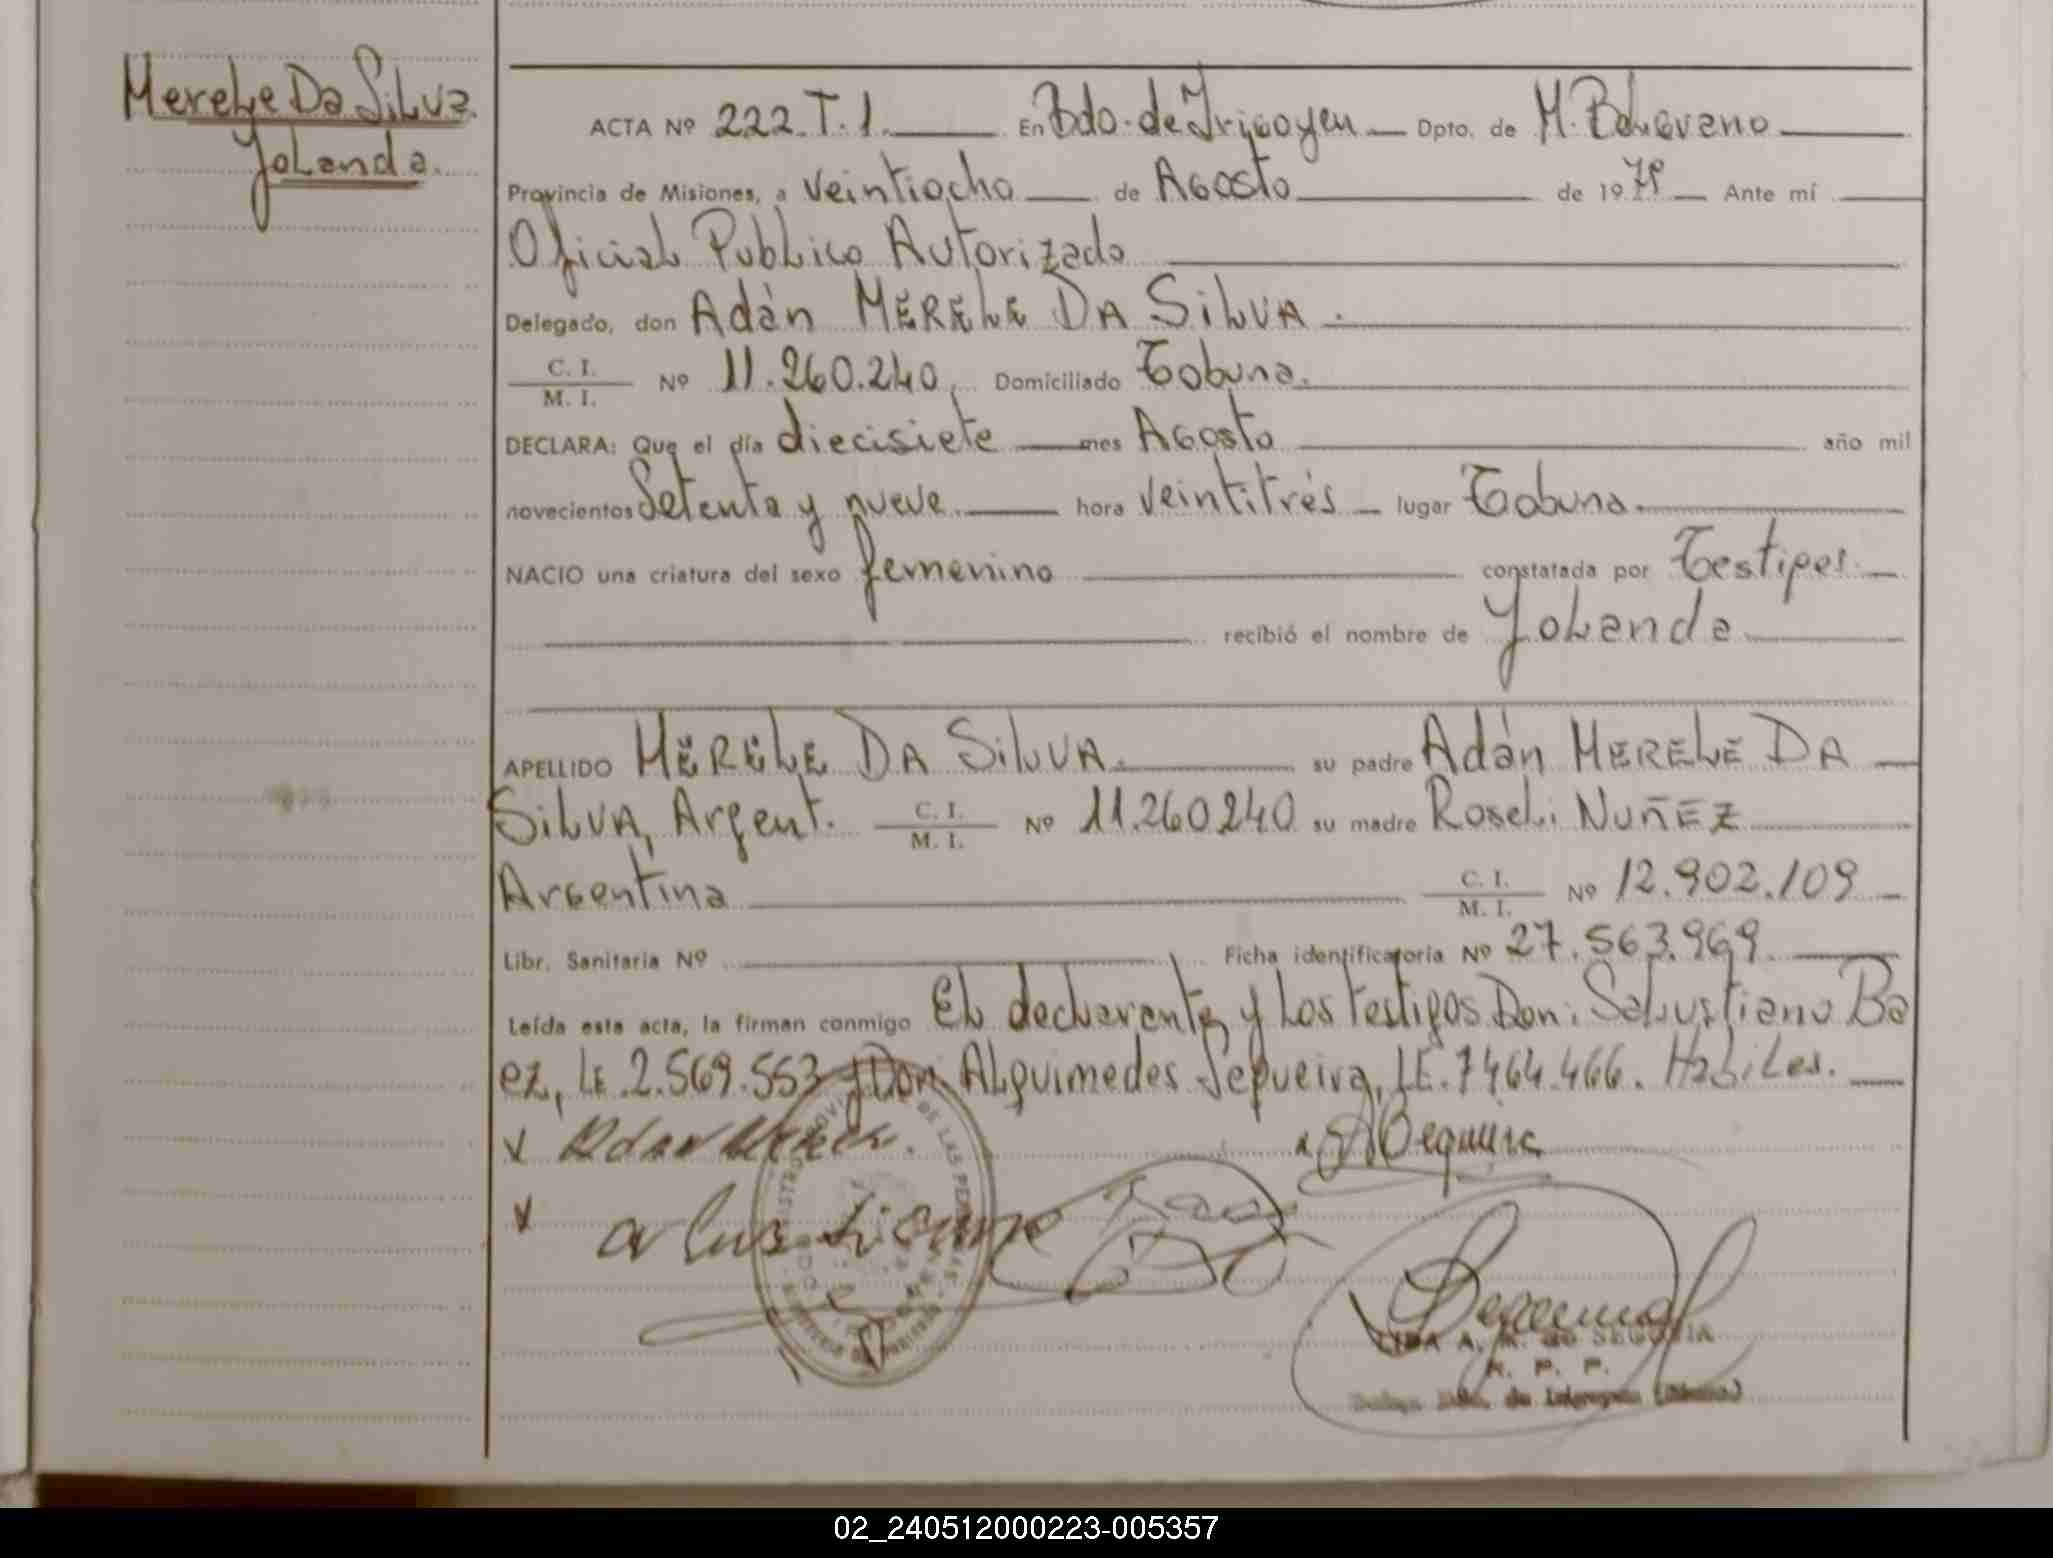 Merele Da Silva
Yolanda.
ACTA Nº 222.T.1. En Bdo. de Irigoyen Dpto. de M. Belgrano
Provincia de Misiones, a veintiocho de Agosto de 1979 Ante mí
Oficial Publico Autorizado
Delegado, don Adán MERELE DA SILVA.
C. I.
M. I. Nº 11.260.240, Domiciliado Tobuna.
DECLARA: Que el día diecisiete mes Agosto año mil
novecientos Setenta y nueve hora veintitrés lugar Tobuna.
NACIO una criatura del sexo femenino constatada por Testigos
recibió el nombre de Yolanda
APELLIDO MERELE DA SILVA. su padre Adán MERELE DA
SILVA, Argent. C. I. M. I. Nº 11.260240 su madre Roseli NUÑEZ
Argentina C. I. M. I. Nº 12.902.109
Libr. Sanitaria Nº Ficha identificatoria Nº 27.563.969
Leída esta acta, la firman conmigo El declarante y los testigos Don: Salustiano Ba
ez, LE.2.569.553 y Don Alquimedes Sequeira, LE.7464.466. Habiles.
DE LAS PER
LIDA A. R. de SEGOVIA
R. P. P.
02_240512000223-005357